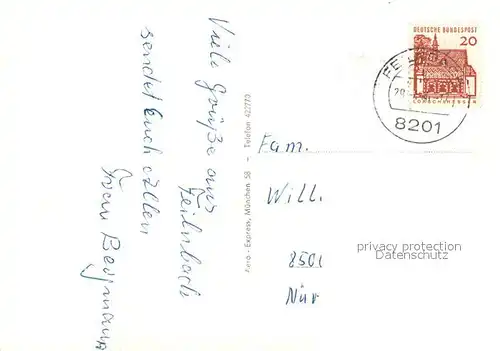 Viele Grüße aus
Feilnbach
sendet Euch allen
Frau Bergmann
Foto - Express, München 58 - Telefon 422770
DEUTSCHE BUNDESPOST
20
LORSCH/HESSEN
8201
Fam.
Will.
8501
Nür
privacy protection
Datenschutz